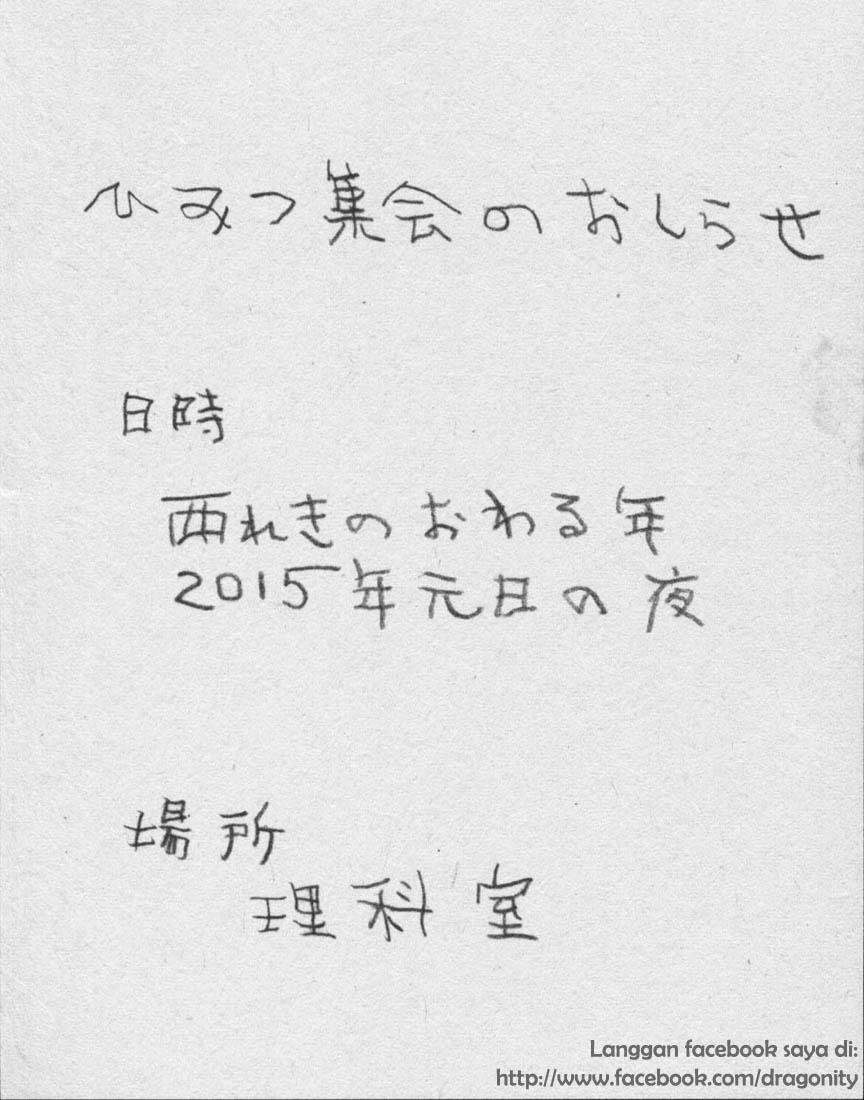 ひみつ集会のおしらせ
日時
西れきのおわる年
2015年元日の夜
場所
理科室
Langgan facebook saya di:
http://www.facebook.com/dragonity